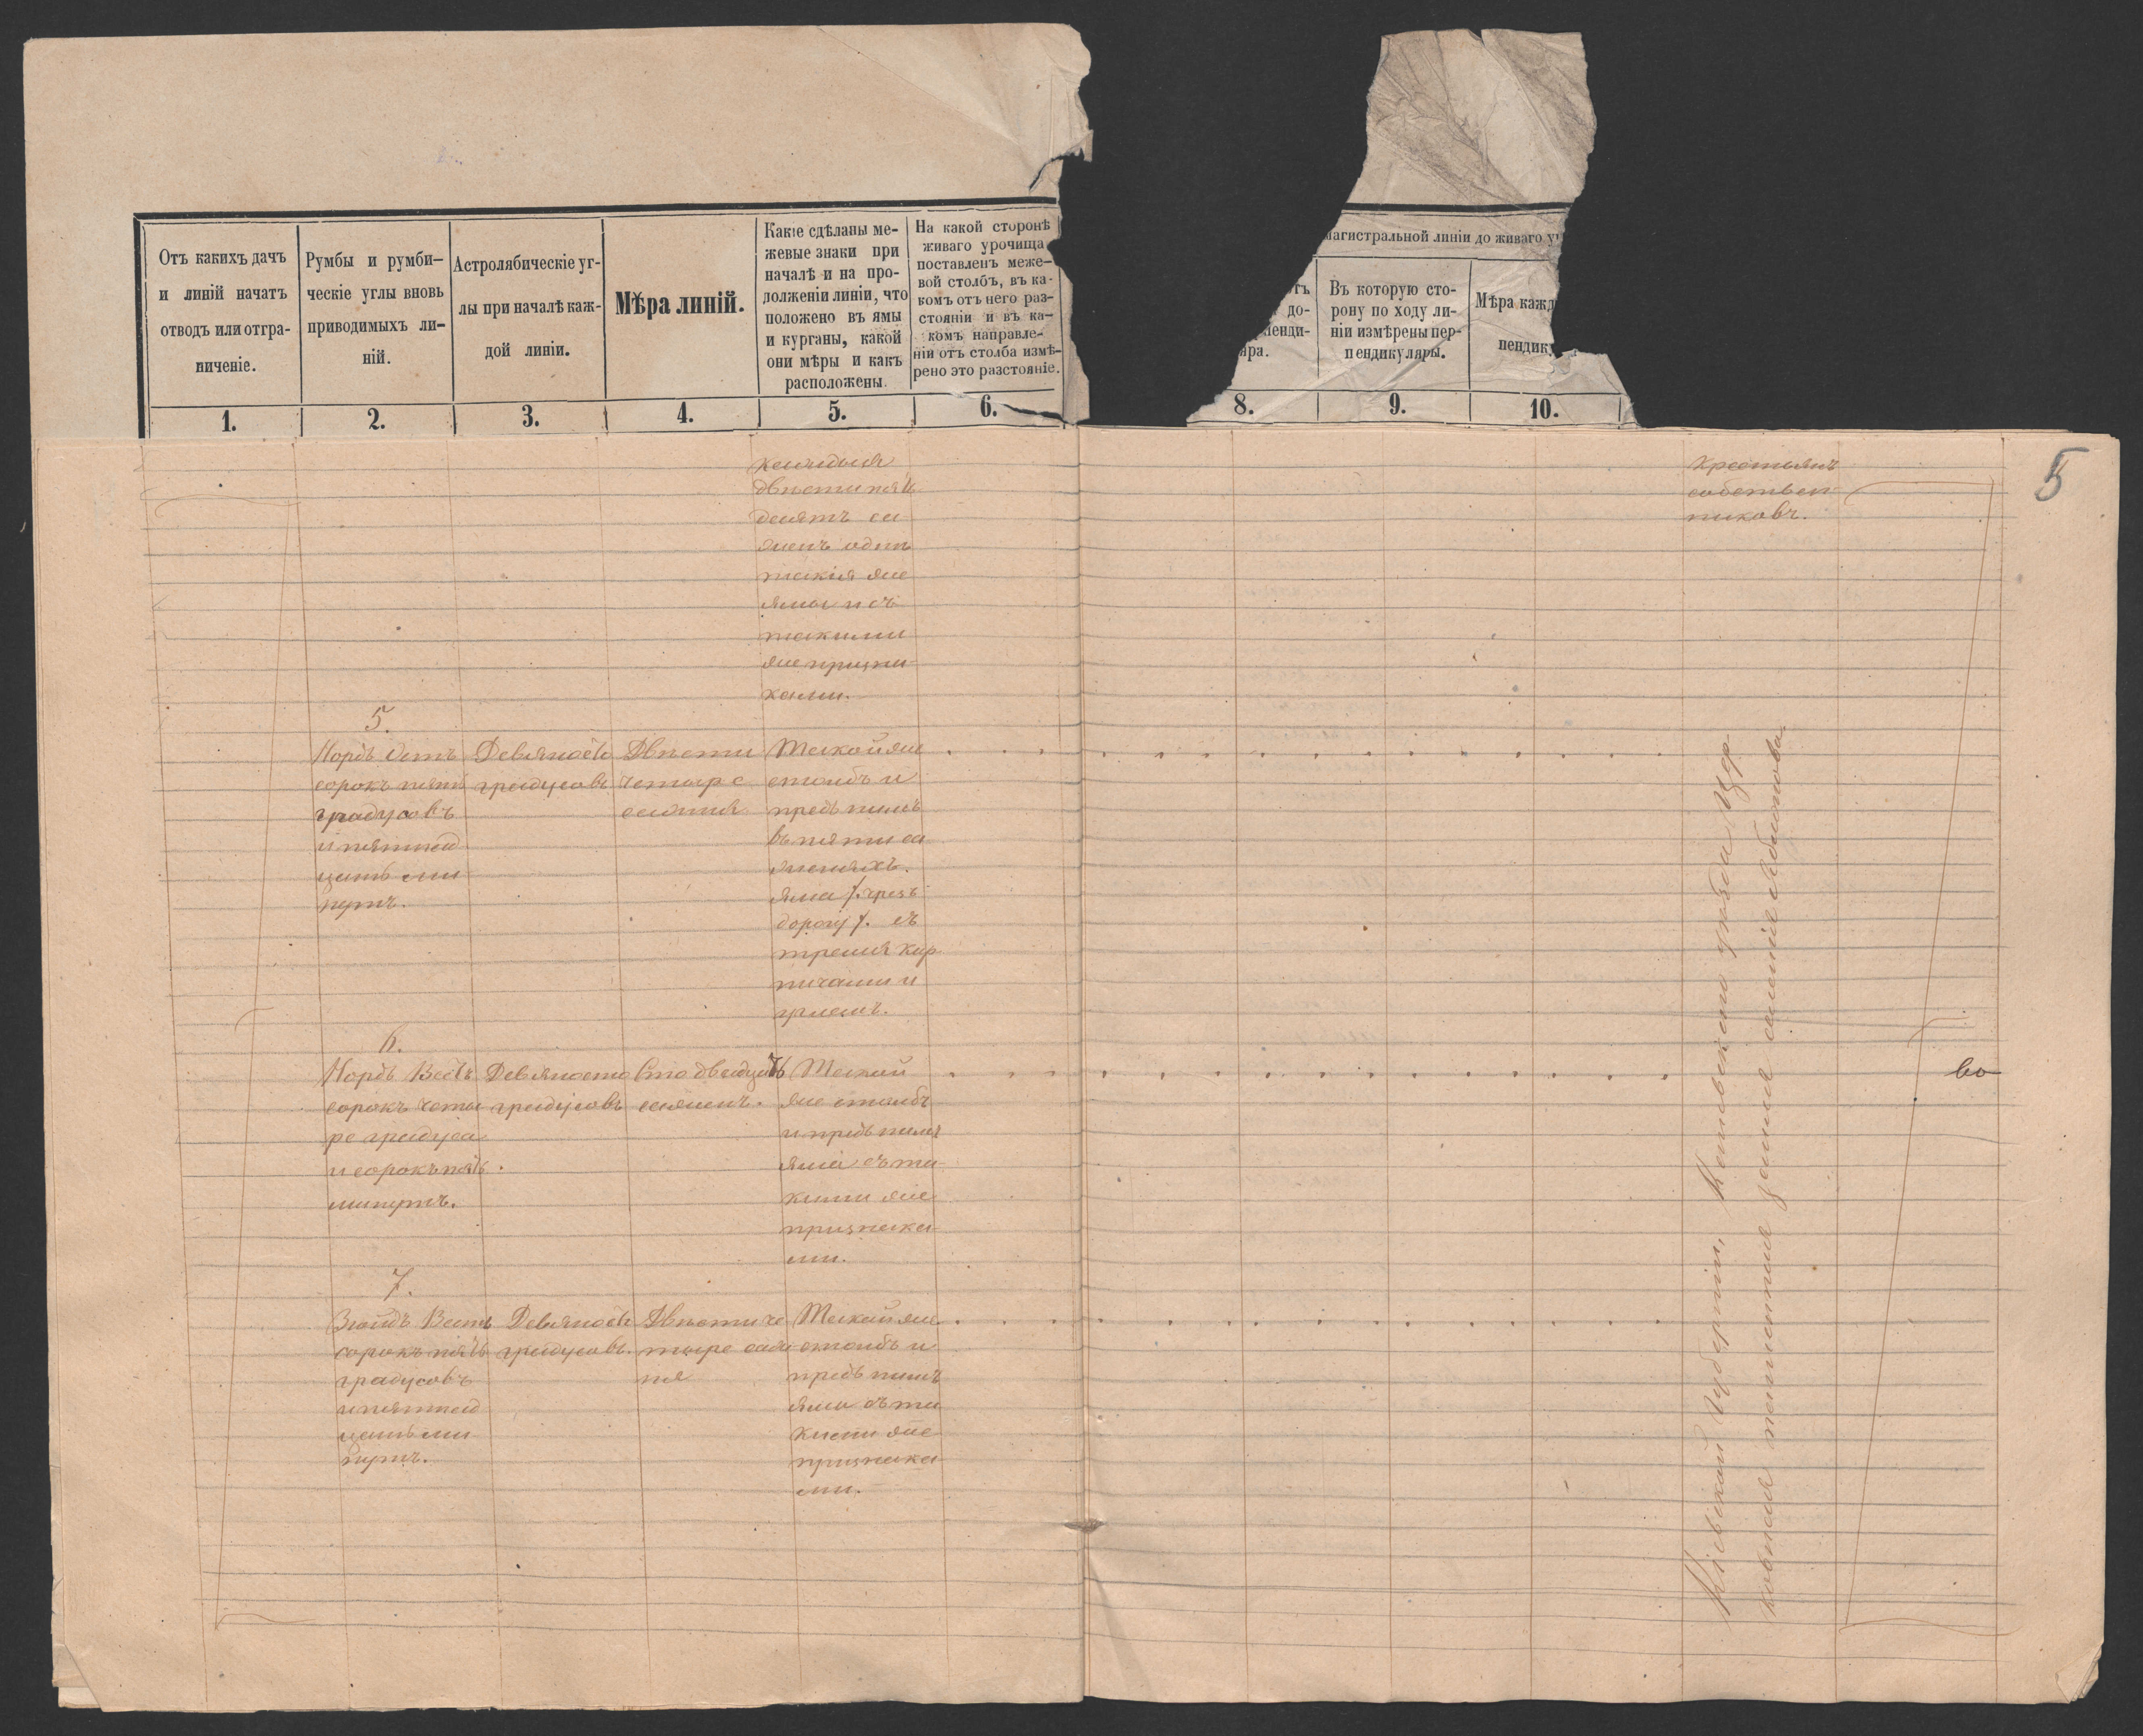 Отъ какихъ дачъ
и линій начатъ
отводъ или отгра-
ниченіе.
Румбы и румби-
ческіе углы вновь
приводимыхъ ли-
ній.
Астролябическіе уг-
лы при началѣ каж-
дой линіи.
Мѣра линій.
Какіе сдѣланы ме-
жевые знаки при
началѣ и на про-
долженіи линіи, что
положено въ ямы
и курганы, какой
они мѣры и какъ
расположены.
На какой сторонѣ
живаго урочища
поставленъ меже-
вой столбъ, въ ка-
комъ отъ него раз-
стояніи и въ ка-
комъ направле-
ніи отъ столба измѣ-
рено это разстояніе.
магистральной линіи до живаго у
отъ
до-
пенди-
яра.
Въ которую сто-
рону по ходу ли-
ніи измѣрены пер-
пендикуляры.
Мѣра кажд
пендик
1.
2.
3.
4.
5.
6.
8.
9.
10.
5
каждыя
двѣсти пять
десятъ са
женъ одни
такія же
ямы и съ
такими
же призна
ками.
крестьянъ
собствен
никовъ.
5.
Нордъ Остъ
сорокъ пять
градусовъ
и пятнад
цать ми
нутъ.
Девяносто
градусовъ
Двѣсти
четыре
сажня
Такой же
столбъ и
предъ нимъ
въ пяти са
женяхъ.
яма /. чрезъ
дорогу /. съ
тремя кир
пичами и
углемъ.
6.
Нордъ Вестъ
сорокъ четы
ре градуса
и сорокъ пять
минутъ.
Девяносто
градусовъ
Сто двадцать
саженъ.
Такой
же столбъ
и предъ нимъ
яма съ та
кими же
признака
ми.
во
7.
Зюйдъ Вестъ
сорокъ пять
градусовъ
и пятнад
цать ми
нутъ.
Девяносто
градусовъ.
Двѣсти че
тыре саж
ня
Такой же
столбъ и
предъ нимъ
яма съ та
кими же
признака
ми.
Кіевской Губерніи, уѣзда Цер
ковная земля селенія